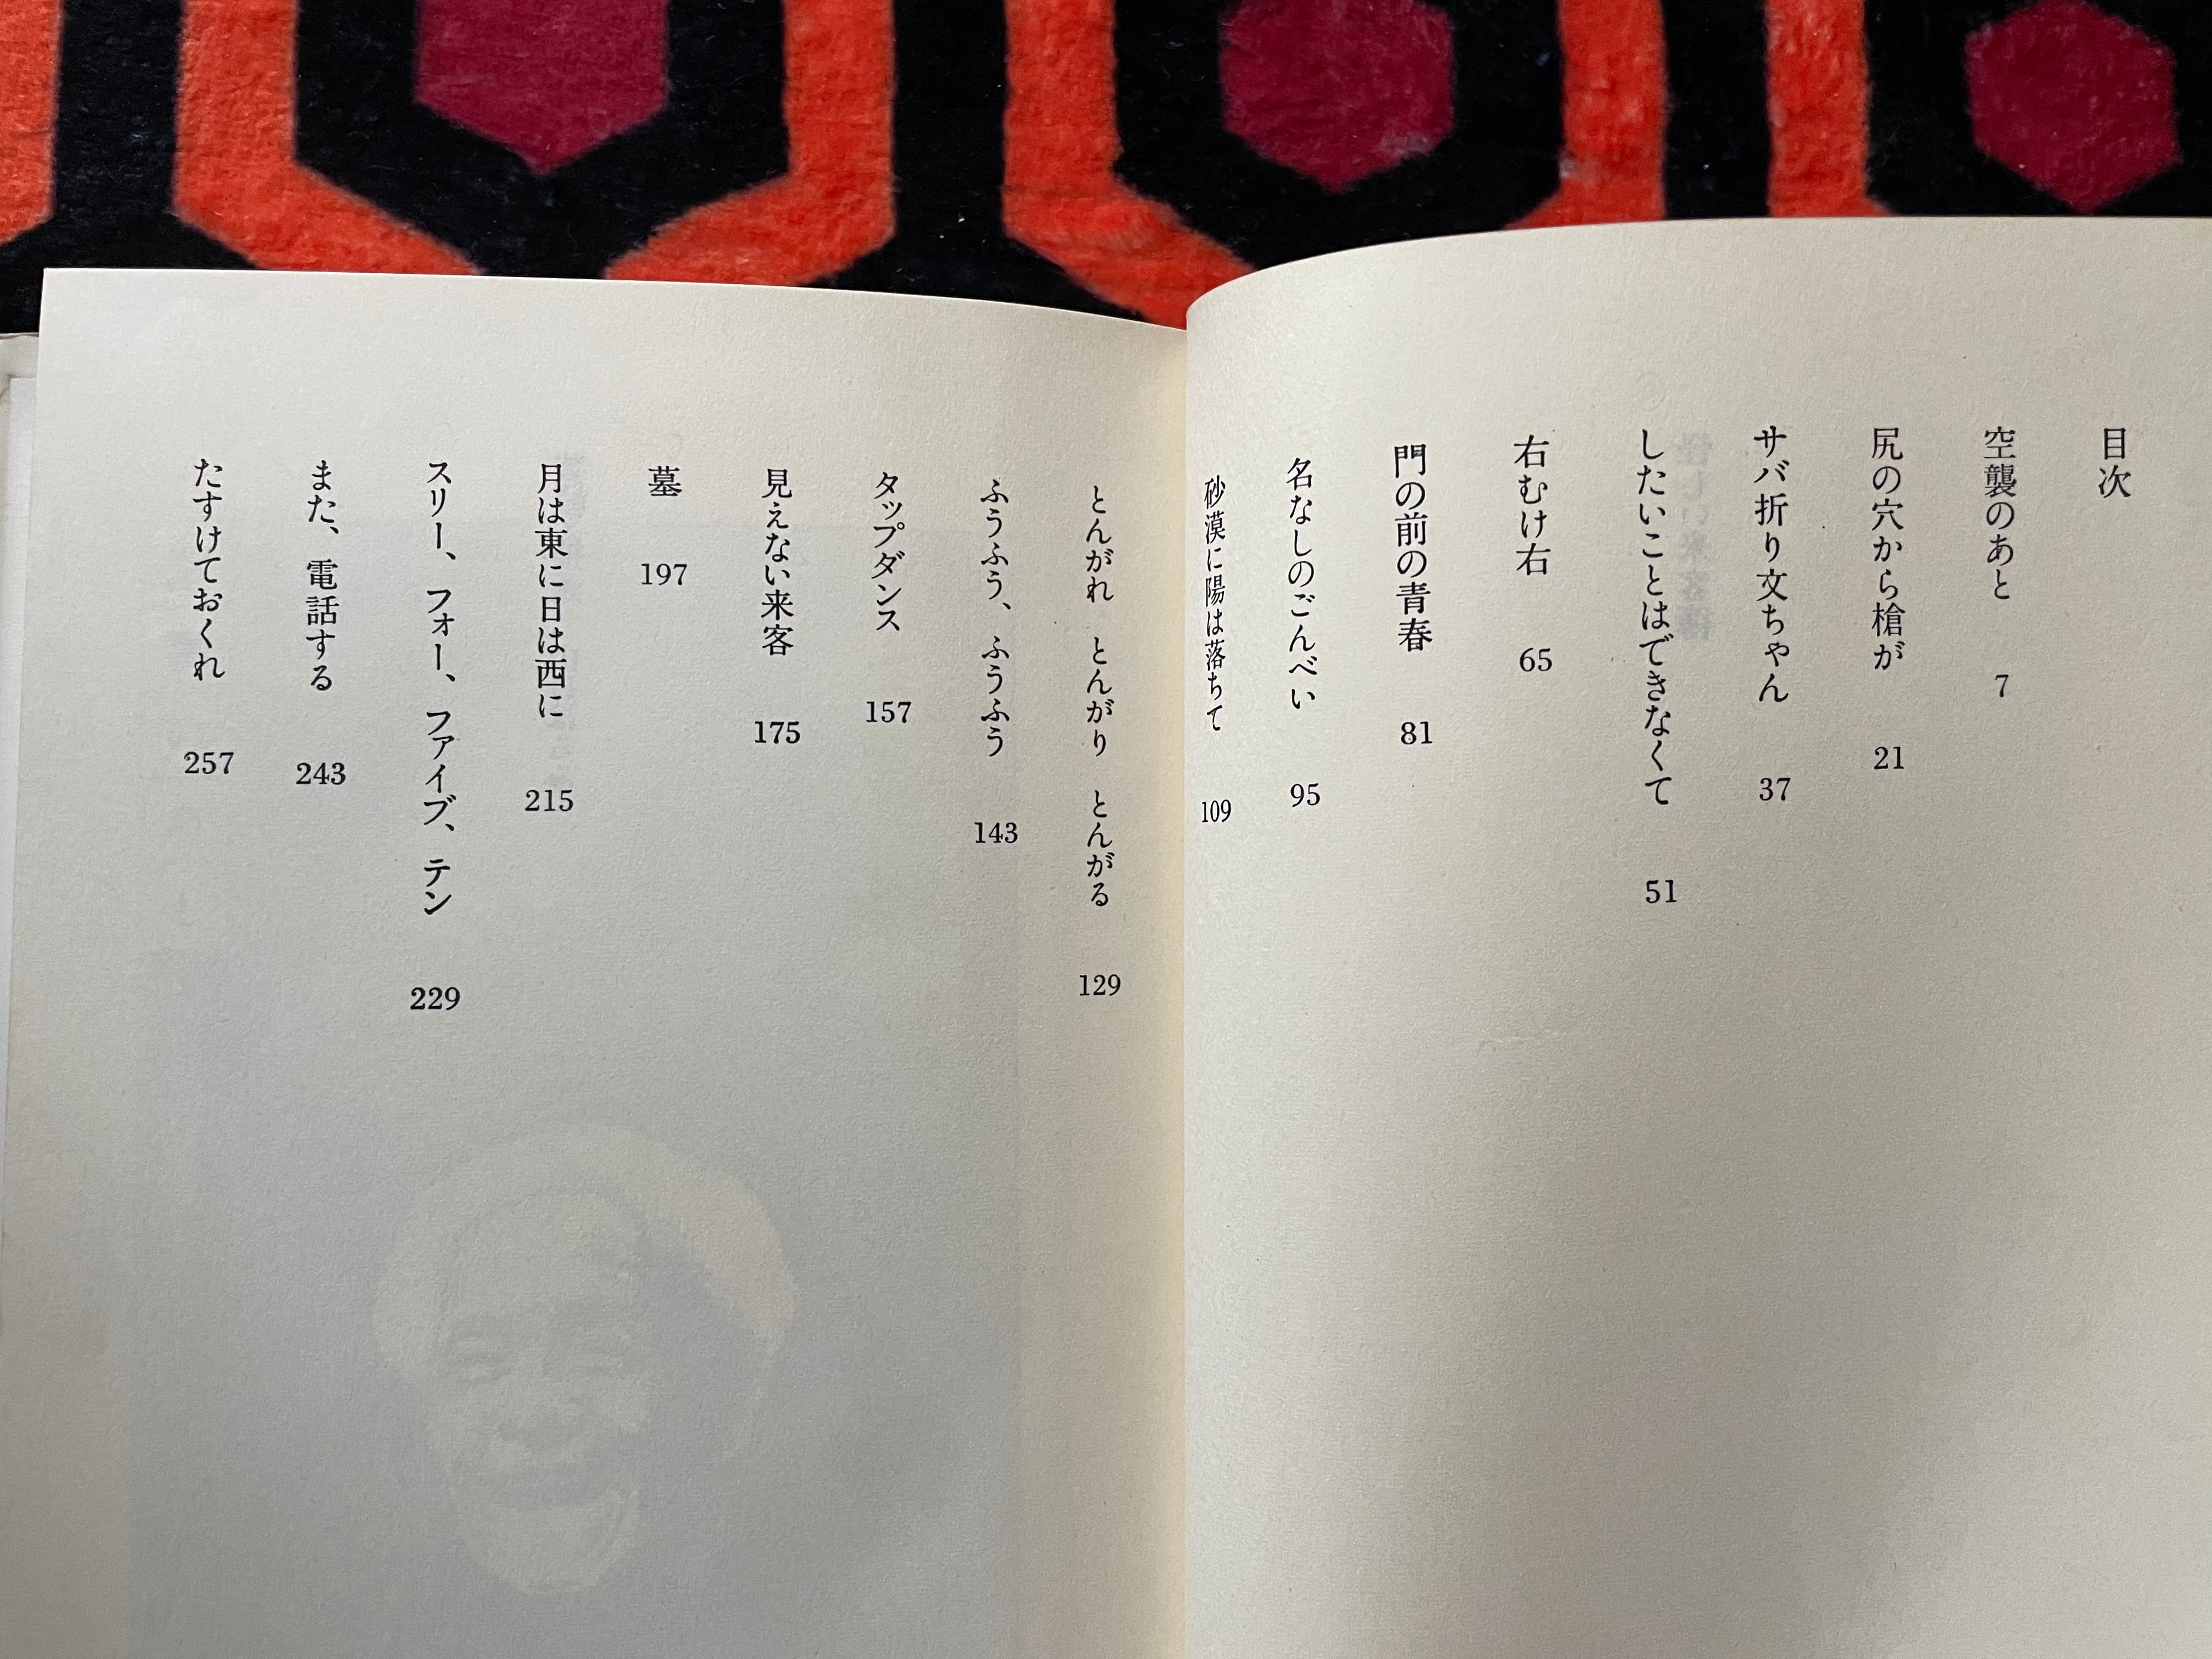 目次
空襲のあと 7
尻の穴から槍が 21
サバ折り文ちゃん 37
したいことはできなくて 51
右むけ右 65
門の前の青春 81
名なしのごんべい 95
砂漠に陽は落ちて 109
とんがれ とんがり とんがる 129
ふうふう、ふうふう 143
タップダンス 157
見えない来客 175
墓 197
月は東に日は西に 215
スリー、フォー、ファイブ、テン 229
また、電話する 243
たすけておくれ 257